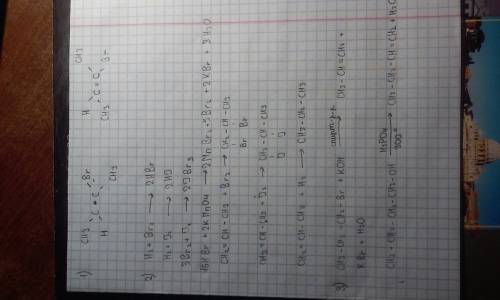 1) CH3 Br H CH3
C = C C = C
H CH3 CH3 Br
2) H2 + Br2 → 2HBr
H2 + J2 → 2HJ
3Br2 + J2 → 2JBr3
16HBr + 2KMnO4 → 2MnBr2 + 5Br2 + 2KBr + 8H2O
CH2 = CH - CH3 + Br2 → CH2 - CH - CH3
Br Br
CH2 = CH - CH3 + J2 → CH2 - CH - CH3
J J
CH2 = CH - CH3 + H2 → CH3 - CH2 - CH3
3) CH3 - CH2 - CH2 - Br + KOH спирт. р-р. → CH3 - CH = CH2 +
KBr + H2O
CH3 - CH2 - CH2 - CH2 - OH H3PO4 300° → CH3 - CH2 - CH = CH2 + H2O